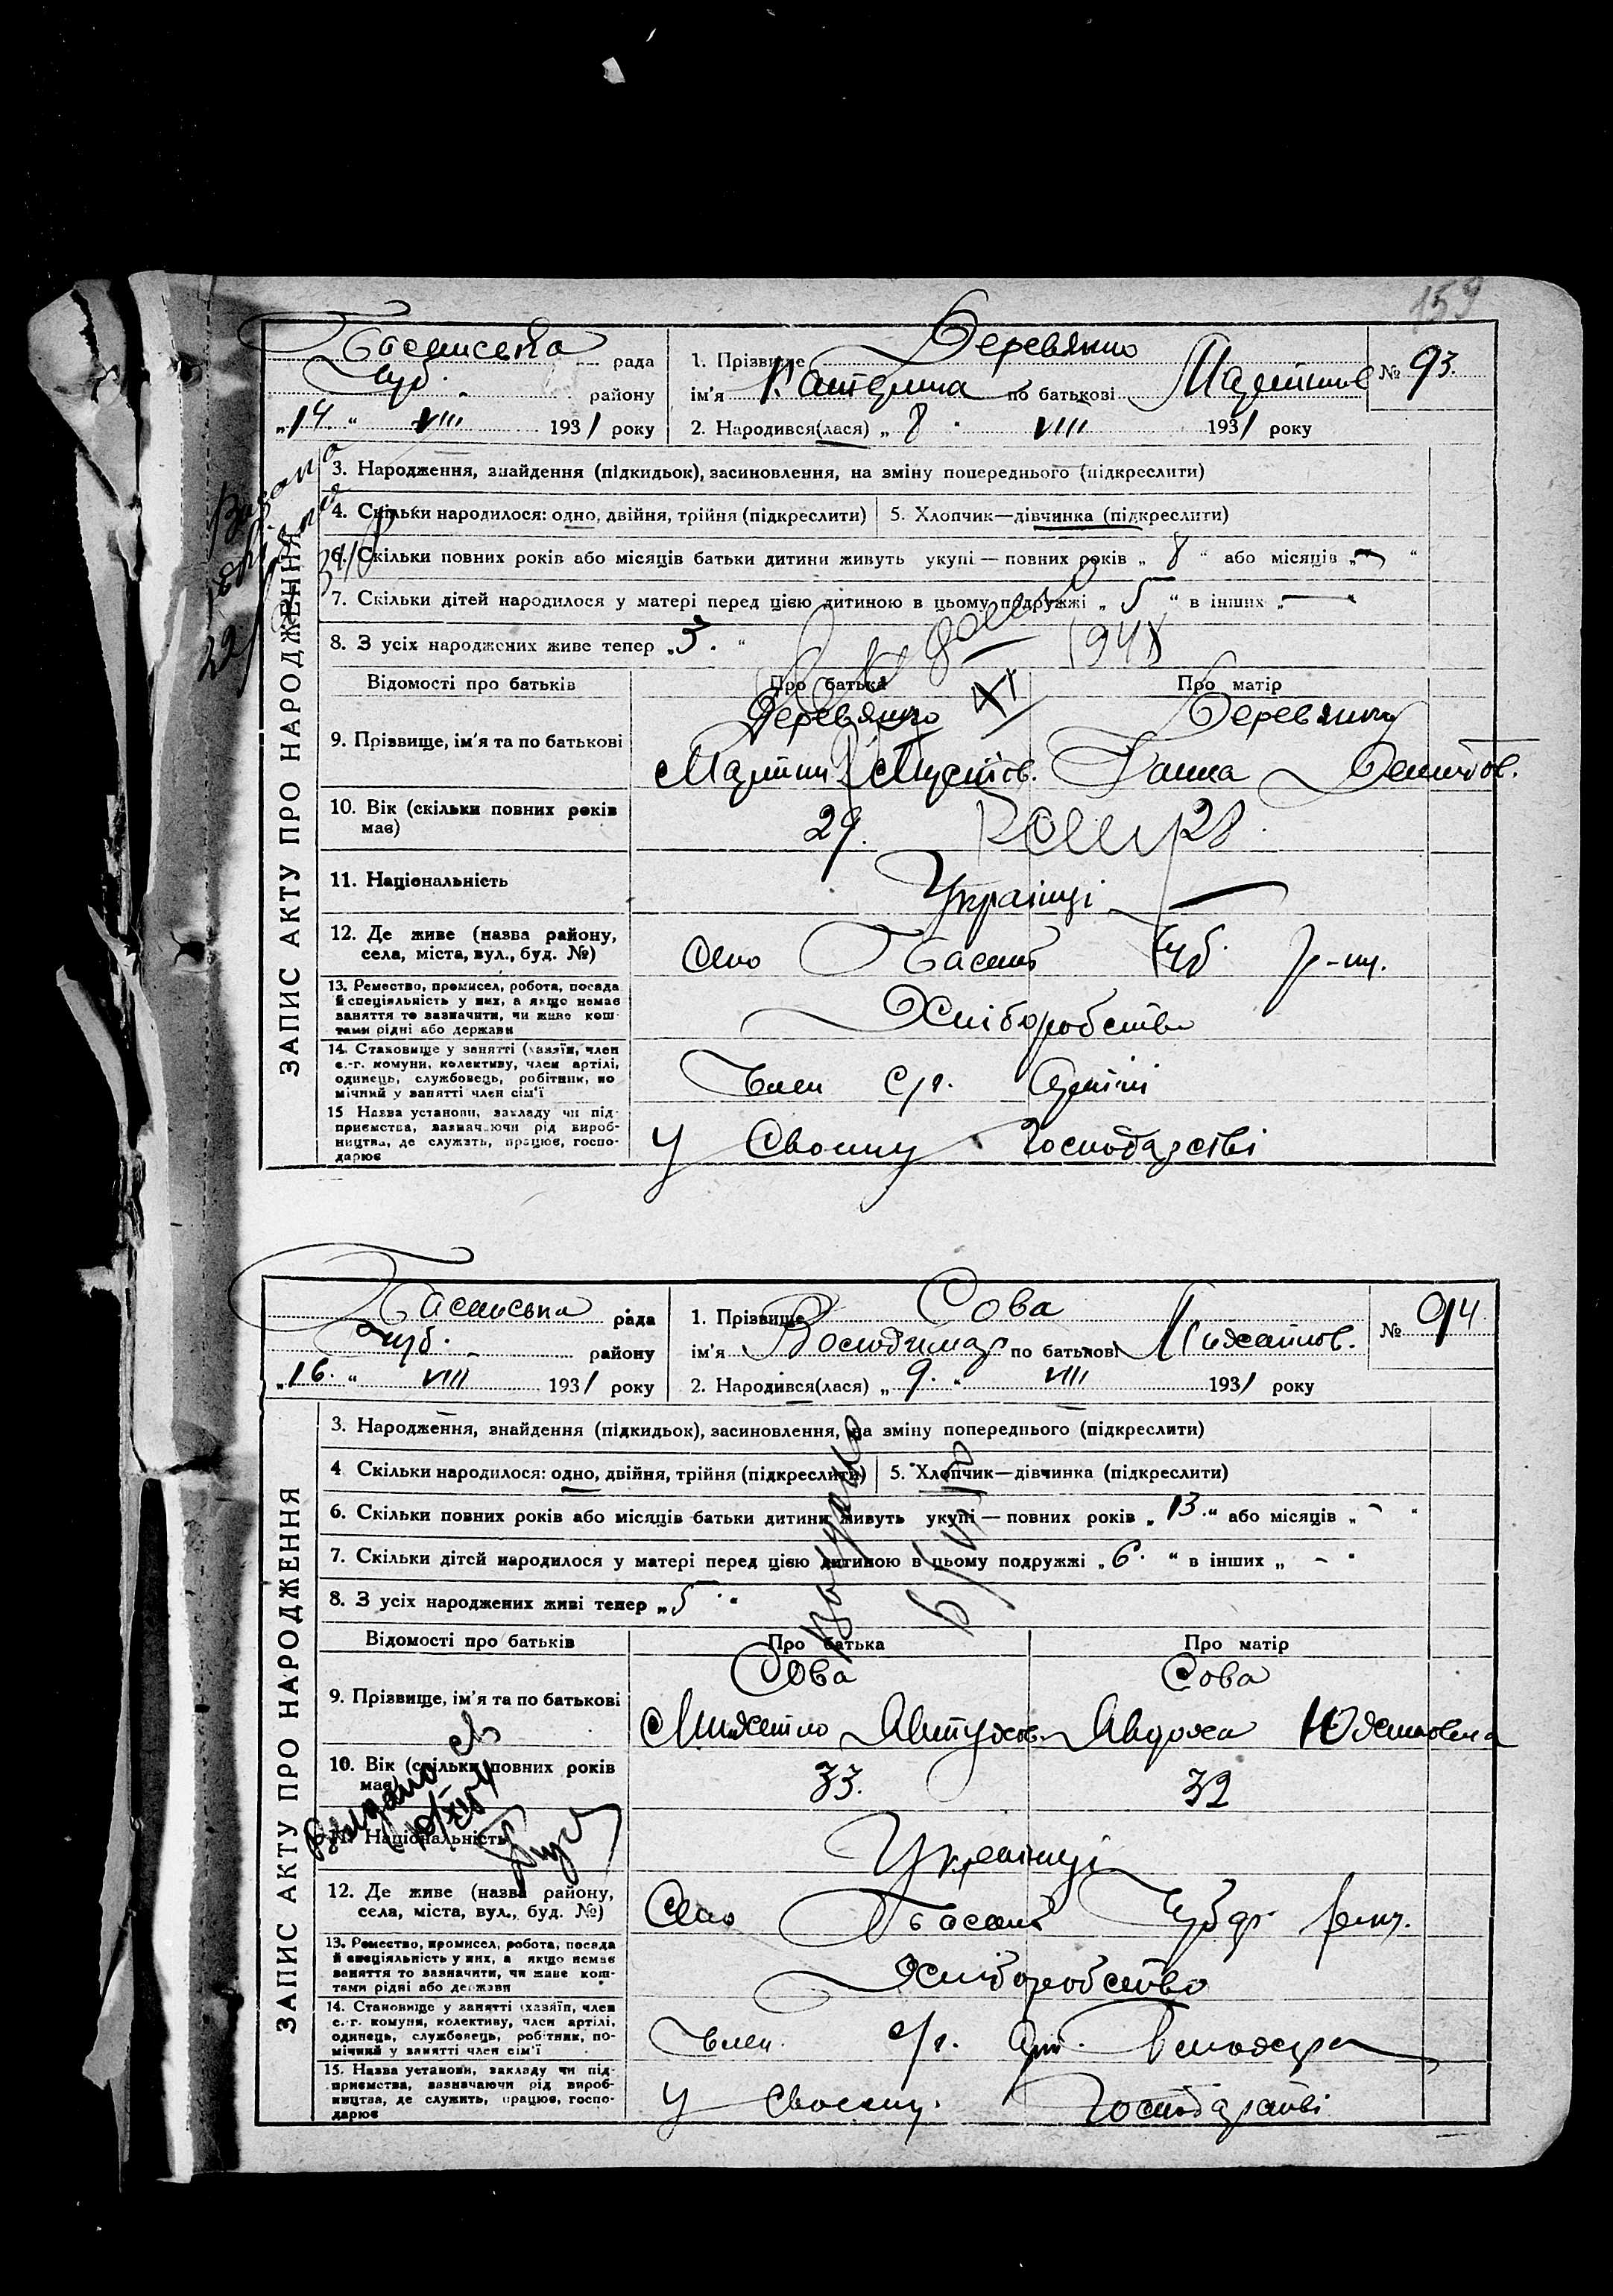 159
рада 1. Прізвище Деревянко № 93.
Чуб. району ім'я Катерина по батькові Мартинов
„14. “ VIII 1931 року 2. Народився(лася) „ 8 “ VIII 1931 року
ЗАПИС АКТУ ПРО НАРОДЖЕННЯ
3. Народження, знайдення (підкидьок), засиновлення, на зміну попереднього (підкреслити)
4. Скільки народилося: одно, двійня, трійня (підкреслити) 5. Хлопчик—дівчинка (підкреслити)
6. Скільки повних років або місяців батьки дитини живуть укупі — повних років „ 8 “ або місяців „ — “
7. Скільки дітей народилося у матері перед цією дитиною в цьому подружжі „ 5 “ в інших „ — “
8. З усіх народжених живе тепер „ 3. “
1948
Відомості про батьків Про батька Про матір
Деревянко Деревянко
9. Прізвище, ім'я та по батькові
Мартин Ганна
10. Вік (скільки повних років має) 29. 28.
11. Національність Українці
12. Де живе (назва району, села, міста, вул., буд. №) село Басань Чуб. р-ну.
13. Ремество, промисел, робота, посада й спеціяльність у них, а якщо немає заняття то зазначити, чи живе коштами рідні або держави Хліборобство
14. Становище у занятті (хазяїн, член с.-г. комуни, колективу, член артілі, одинець, службовець, робітник, помічний у занятті член сім'ї Член с/г. Артілі
15 Назва установи, закладу чи підприємства, зазначаючи рід виробництва, де служить, працює, господарює У Своєму Господарстві
рада 1. Прізвище Сова № 94.
Чуб. району ім'я Володимир по батькові Михайлов.
„16. “ VIII 1931 року 2. Народився(лася) „ 9. “ VIII 1931 року
ЗАПИС АКТУ ПРО НАРОДЖЕННЯ
3. Народження, знайдення (підкидьок), засиновлення, на зміну попереднього (підкреслити)
4 Скільки народилося: одно, двійня, трійня (підкреслити) 5. Хлопчик—дівчинка (підкреслити)
6. Скільки повних років або місяців батьки дитини живуть укупі — повних років „ 13. “ або місяців „ - “
7. Скільки дітей народилося у матері перед цією дитиною в цьому подружжі „ 6. “ в інших „ - “
8. З усіх народжених живі тепер „ 5 “
Відомості про батьків Про батька Про матір
Сова Сова
9. Прізвище, ім'я та по батькові
Михайло Явтухов. Явдоха
10. Вік (скільки повних років має) 33. 32
11. Національність Українці
12. Де живе (назва району, села, міста, вул., буд. №) Село Басань
13. Ремество, промисел, робота, посада й спеціяльність у них, а якщо немає заняття то зазначити, чи живе коштами рідні або держави Хліборобство
14. Становище у занятті (хазяїн, член с.-г. комуни, колективу, член артілі, одинець, службовець, робітник, помічний у занятті член сім'ї Член с/г. Арт.
15. Назва установи, закладу чи підприємства, зазначаючи рід виробництва, де служить, працює, господарює У Своєму. Господарстві